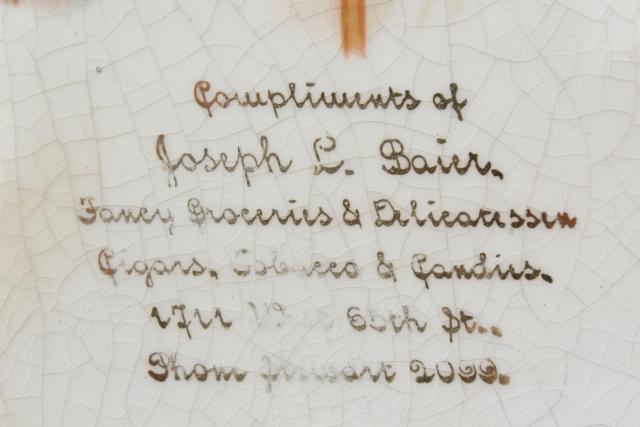 Compliments of
Joseph L. Baier.
Fancy Groceries & Delicatessen
Cigars, Tobacco & Candies.
1711 65th St.
Phone Stewart